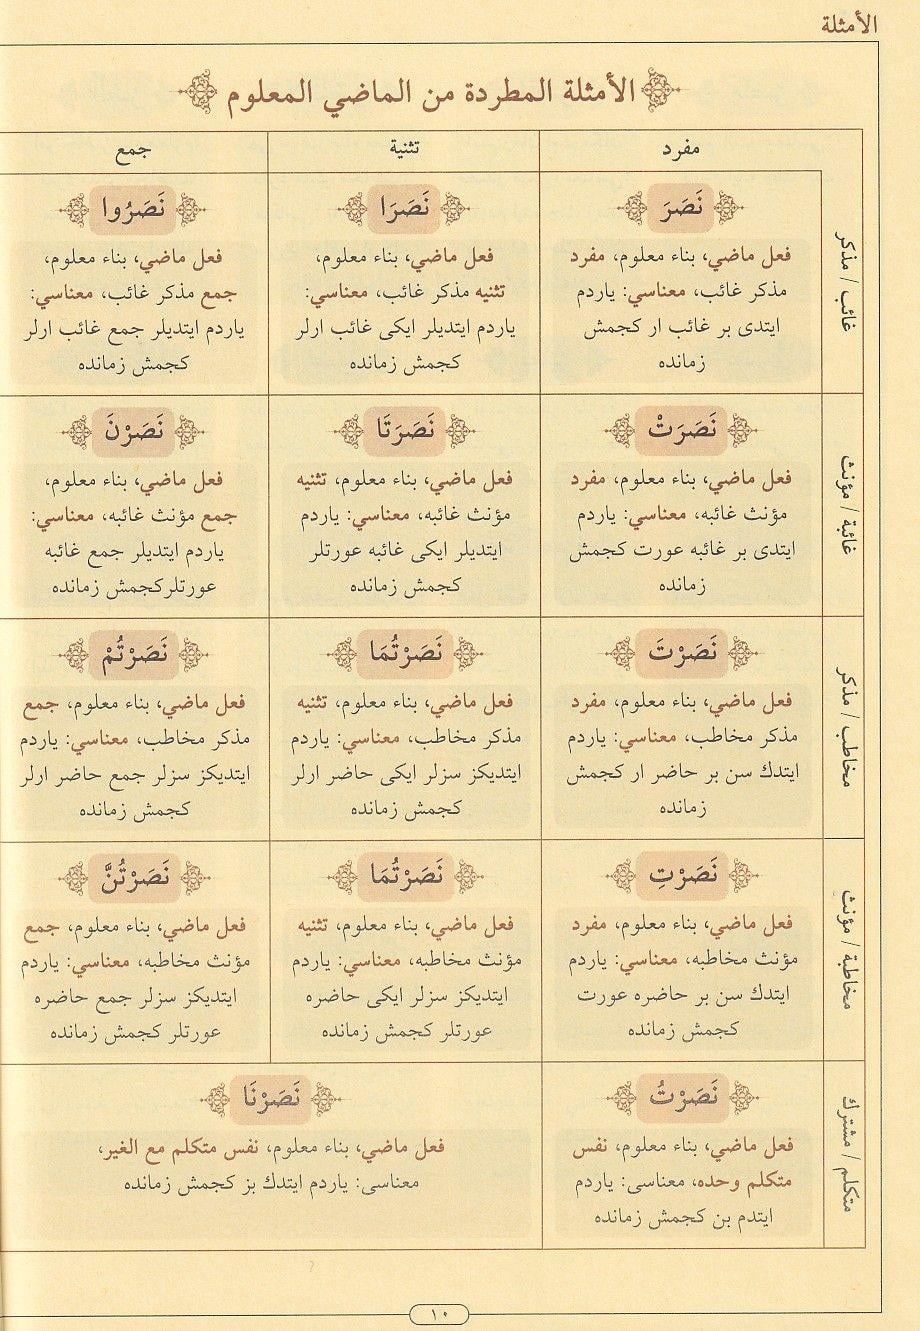 الأمثلة
الأمثلة المطردة من الماضي المعلوم
مفرد
تثنية
جمع
غائب / مذكر
نَصَرَ
فعل ماضي، بناء معلوم، مفرد
مذكر غائب، معناسي: ياردم
ايتدى بر غائب ار كجمش
زمانده
نَصَرَا
فعل ماضي، بناء معلوم،
تثنيه مذكر غائب، معناسي:
ياردم ايتديلر ايكى غائب ارلر
كجمش زمانده
نَصَرُوا
فعل ماضي، بناء معلوم،
جمع مذكر غائب، معناسي:
ياردم ايتديلر جمع غائب ارلر
كجمش زمانده
غائبة / مؤنث
نَصَرَتْ
فعل ماضي، بناء معلوم، مفرد
مؤنث غائبه، معناسي: ياردم
ايتدى بر غائبه عورت كجمش
زمانده
نَصَرَتَا
فعل ماضي، بناء معلوم، تثنيه
مؤنث غائبه، معناسي: ياردم
ايتديلر ايكى غائبه عورتلر
كجمش زمانده
نَصَرْنَ
فعل ماضي، بناء معلوم،
جمع مؤنث غائبه، معناسي:
ياردم ايتديلر جمع غائبه
عورتلركجمش زمانده
مخاطب / مذكر
نَصَرْتَ
فعل ماضي، بناء معلوم، مفرد
مذكر مخاطب، معناسي: ياردم
ايتدك سن بر حاضر ار كجمش
زمانده
نَصَرْتُمَا
فعل ماضي، بناء معلوم، تثنيه
مذكر مخاطب، معناسي: ياردم
ايتديكز سزلر ايكى حاضر ارلر
كجمش زمانده
نَصَرْتُمْ
فعل ماضي، بناء معلوم، جمع
مذكر مخاطب، معناسي: ياردم
ايتديكز سزلر جمع حاضر ارلر
كجمش زمانده
مخاطبة / مؤنث
نَصَرْتِ
فعل ماضي، بناء معلوم، مفرد
مؤنث مخاطبه، معناسي: ياردم
ايتدك سن بر حاضره عورت
كجمش زمانده
نَصَرْتُمَا
فعل ماضي، بناء معلوم، تثنيه
مؤنث مخاطبه، معناسي: ياردم
ايتديكز سزلر ايكى حاضره
عورتلر كجمش زمانده
نَصَرْتُنَّ
فعل ماضي، بناء معلوم، جمع
مؤنث مخاطبه، معناسي: ياردم
ايتديكز سزلر جمع حاضره
عورتلر كجمش زمانده
متكلم / مشترك
نَصَرْتُ
فعل ماضي، بناء معلوم، نفس
متكلم وحده، معناسى: ياردم
ايتدم بن كجمش زمانده
نَصَرْنَا
فعل ماضي، بناء معلوم، نفس متكلم مع الغير،
معناسى: ياردم ايتدك بز كجمش زمانده
١٠